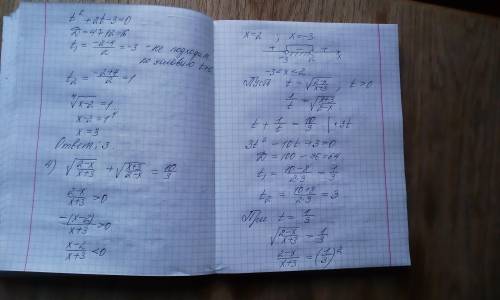 t² + 2t - 3 = 0
D = 4 + 12 = 16
t₁ = (-2-4)/2 = -3 - не подходит
по условию t>0
t₂ = (-2+4)/2 = 1
⁴√(x-2) = 1
x-2 = 1⁴
x = 3
Ответ: 3
4) √((2-x)/(x+3)) + √((x+3)/(2-x)) = 10/3
(2-x)/(x+3) > 0
-(x-2)/(x+3) > 0
(x-2)/(x+3) < 0
x=2 ; x=-3
+ - +
-3 2 x
-3<x<2
Пусть t = √((2-x)/(x+3)) , t>0
1/t = √((x+3)/(2-x))
t + 1/t = 10/3 | ·3t
3t² - 10t + 3 = 0
D = 100 - 36 = 64
t₁ = (10-8)/(2·3) = 1/3
t₂ = (10+8)/(2·3) = 3
При t = 1/3
√((2-x)/(x+3)) = 1/3
(2-x)/(x+3) = (1/3)²